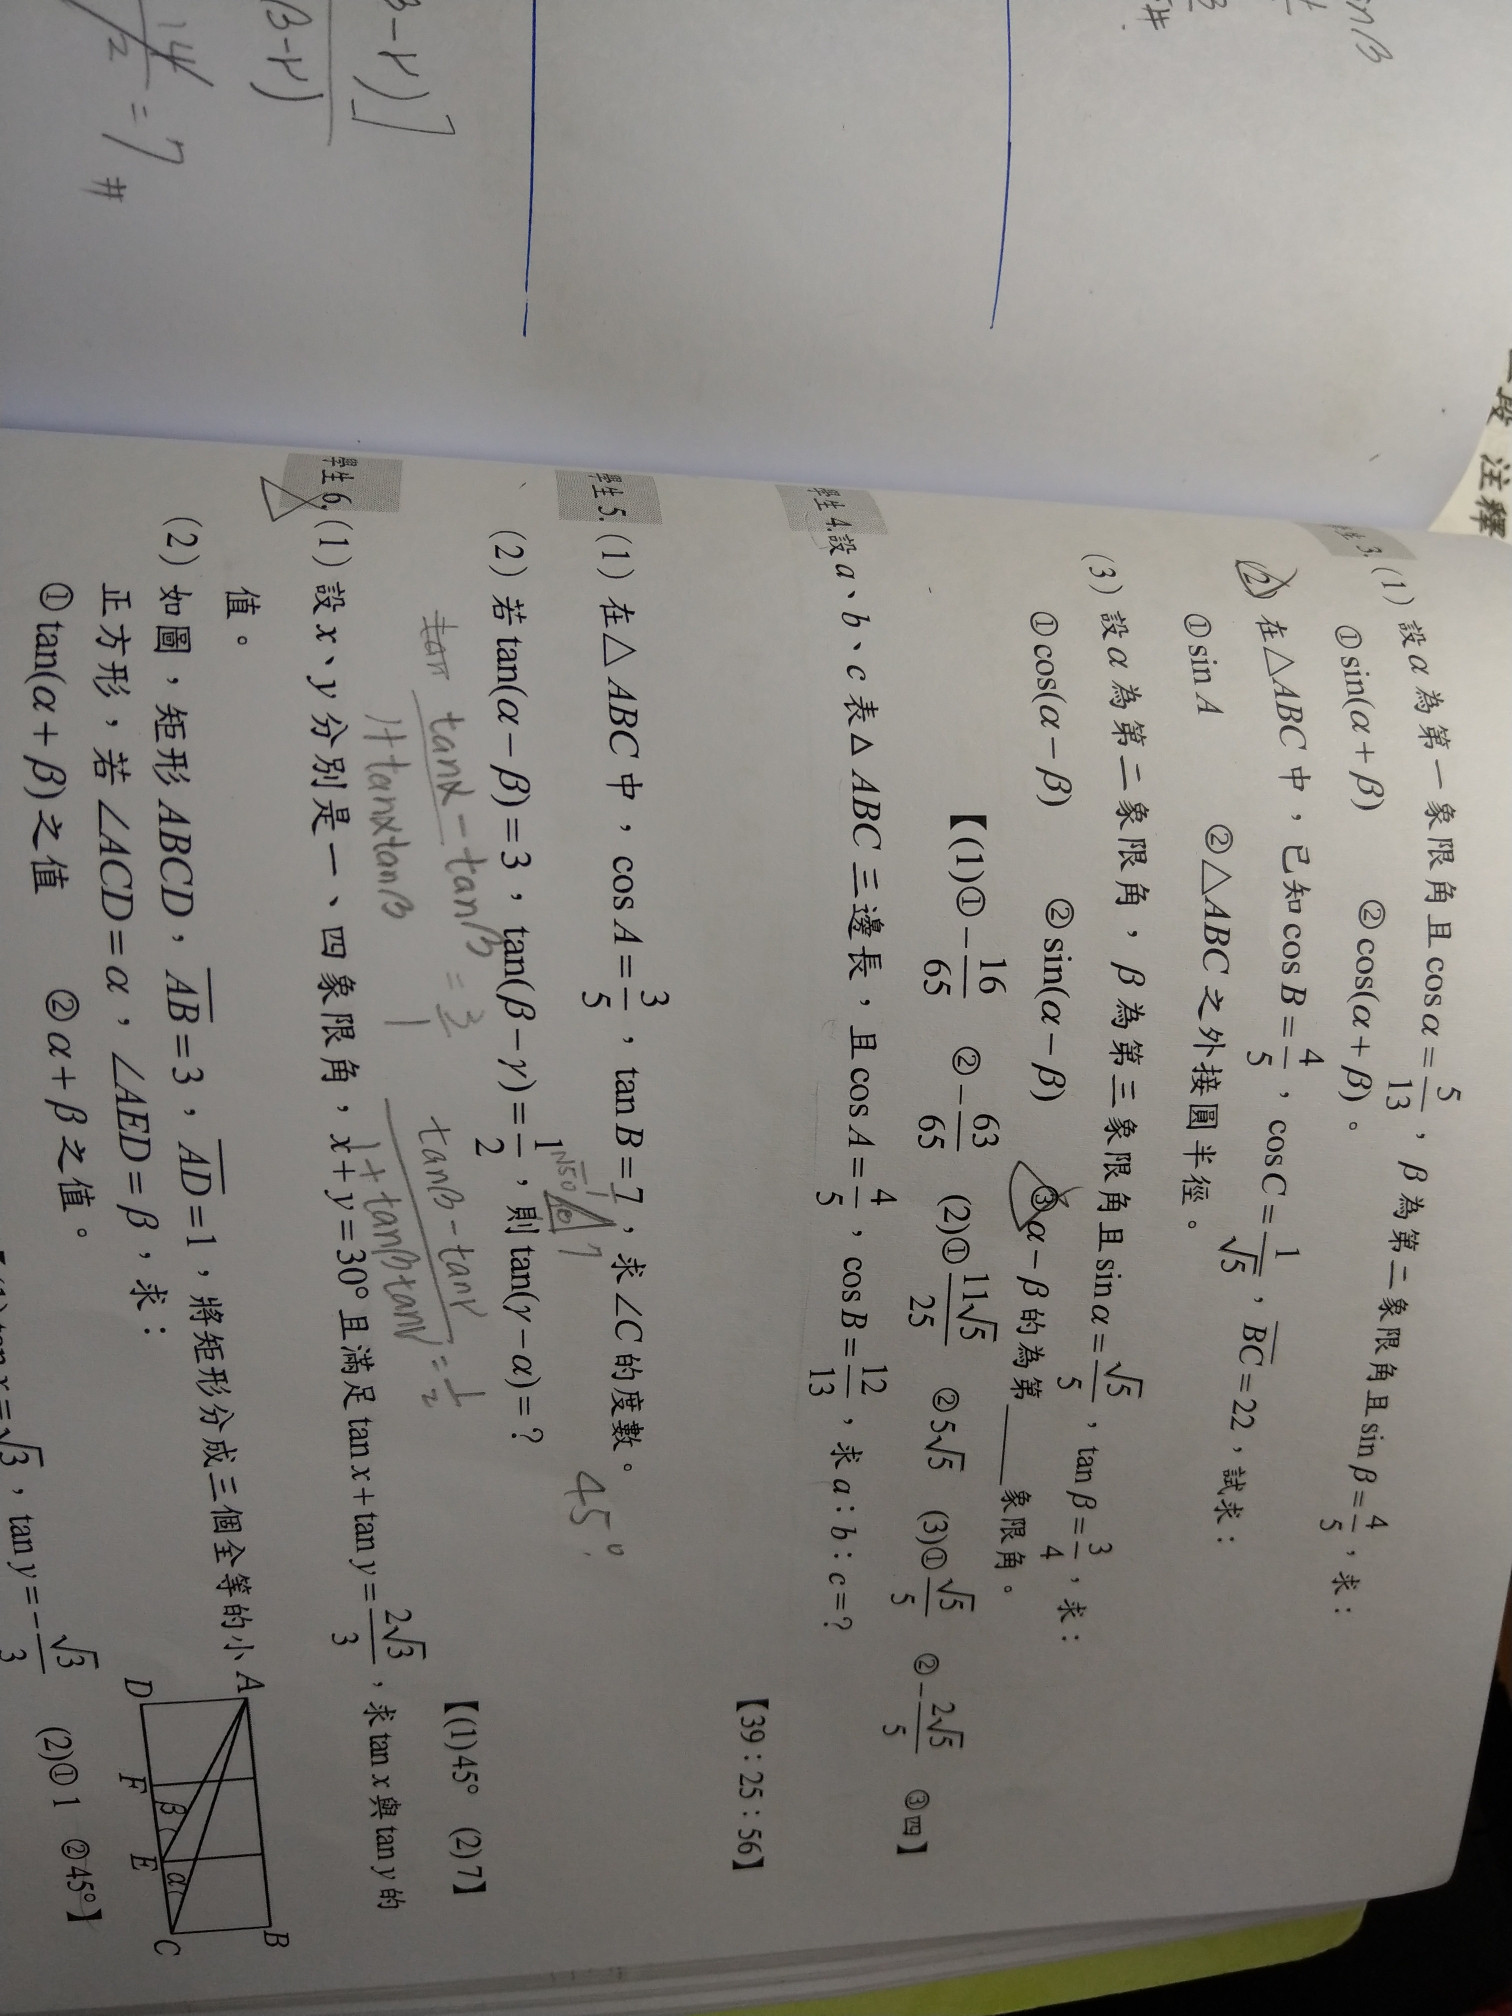 二段 注釋
3.(1) 設α為第一象限角且cosα=5/13，β為第二象限角且sinβ=4/5，求：
①sin(α+β) ②cos(α+β)。
(2) 在△ABC中，已知cosB=4/5，cosC=1/√5，BC=22，試求：
①sin A ②△ABC之外接圓半徑。
(3) 設α為第二象限角，β為第三象限角且sinα=√5/5，tanβ=3/4，求：
①cos(α−β) ②sin(α−β) ③α−β的為第____象限角。
【(1)①−16/65 ②−63/65 (2)①11√5/25 ②5√5 (3)①√5/5 ②−2√5/5 ③四】
學生4.設a、b、c表△ABC三邊長，且cosA=4/5，cosB=12/13，求a：b：c=？
【39：25：56】
學生5.(1) 在△ABC中，cosA=3/5，tanB=7，求∠C的度數。
45°
√50 1 7
(2) 若tan(α−β)=3，tan(β−γ)=1/2，則tan(γ−α)=？
tanα−tanβ/1+tanαtanβ=3/1 tanβ−tanγ/1+tanβtanγ=1/2
【(1)45° (2)7】
學生6.(1) 設x、y分別是一、四象限角，x+y=30°且滿足tanx+tany=2√3/3，求tanx與tany的
值。
(2) 如圖，矩形ABCD，AB=3，AD=1，將矩形分成三個全等的小
正方形，若∠ACD=α，∠AED=β，求：
①tan(α+β)之值 ②α+β之值。
A B
D F E C
β α
=√3，tany=−√3/3 (2)①1 ②45°】
nβ
#
β−γ)]
β−γ)
14/2=7 #